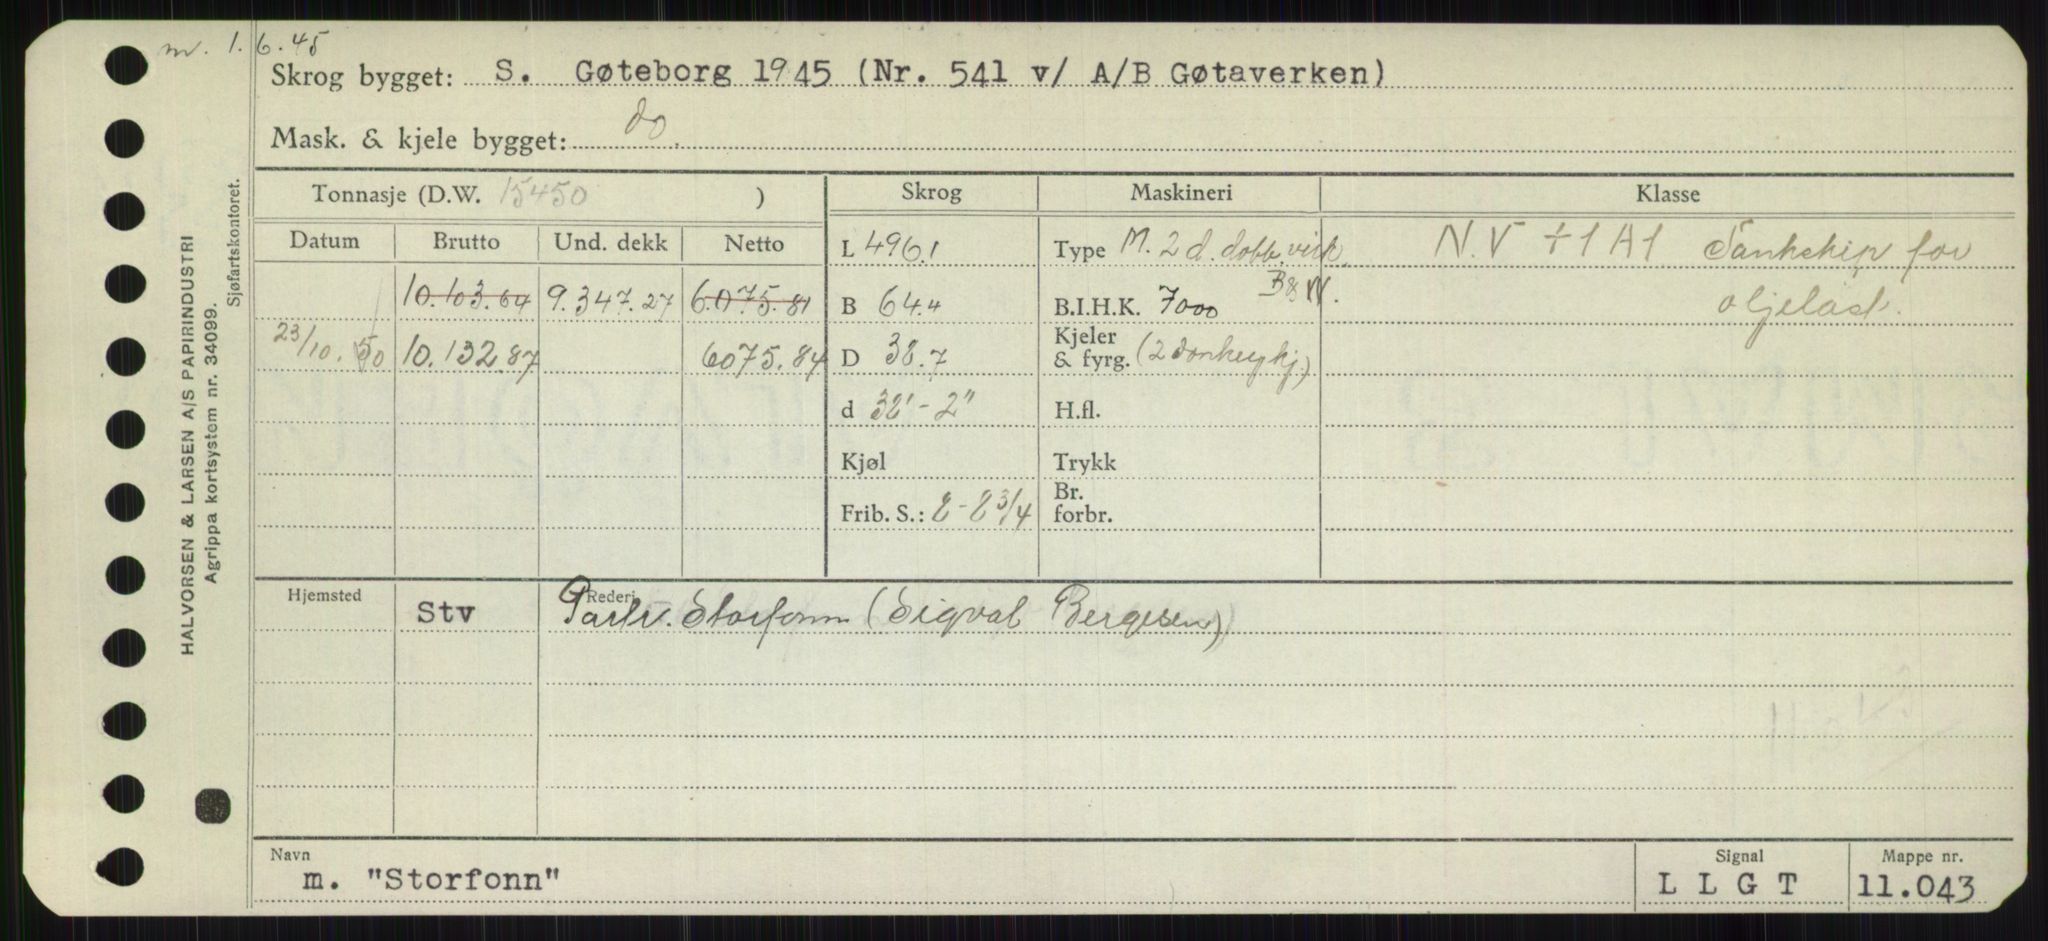 m. 1.6.45
Skrog bygget: S. Gøteborg 1945 (Nr. 541 v/ A/B Gøtaverken)
Mask. & kjele bygget: do.
HALVORSEN & LARSEN A/S PAPIRINDUSTRI
Agrippa kortsystem nr. 34099.
Sjøfartskontoret.
Tonnasje (D.W. 15450 ) Skrog Maskineri Klasse
Datum Brutto Und. dekk Netto
L 496.1 Type M. 2 d. dobb. virk. N.V +1A1 Tankskip for
10.103.64 9.347.27 6.075.81 B 64.4 B.I.H.K. 7000 B&W. oljelast.
23/10.50 10.132.87 6075.84 D 38.7 Kjeler
& fyrg. (2 donkeykj.)
d 32'-2" H.fl.
Kjøl Trykk
Frib. S.: 8-8 3/4 Br.
forbr.
Hjemsted Rederi
Stv Partr. Storfonn (Sigval Bergesen)
Navn Signal Mappe nr.
m. "Storfonn" L L G T 11.043